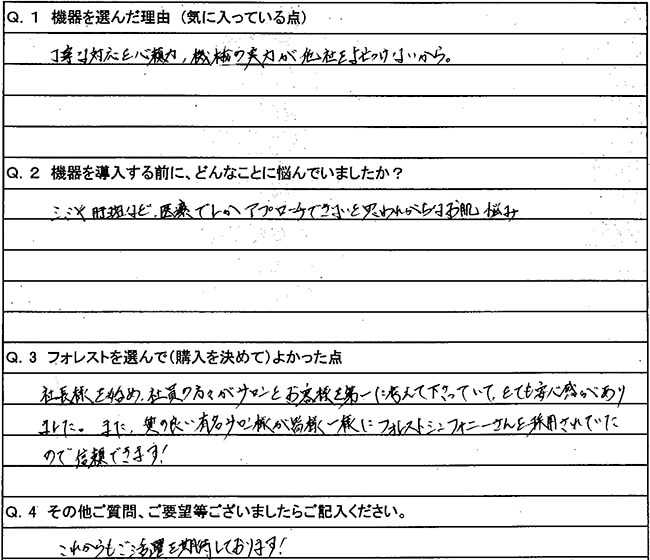 Q. 1 機器を選んだ理由 (気に入っている点)
丁寧な対応と心頼力、機械の実力が他社をよせつけないから。
Q. 2 機器を導入する前に、どんなことに悩んでいましたか？
シミや肝斑など、医療でしかアプローチできないと思われがちなお肌悩み
Q. 3 フォレストを選んで(購入を決めて)よかった点
社長様を始め、社員の方々がサロンとお客様を第一に考えて下さっていて、とても安心感があり
ました。また、質の良い有名サロン様が皆様一様にフォレストシンフォニーさんを採用されていた
ので信頼できます！
Q. 4 その他ご質問、ご要望等ございましたらご記入ください。
これからもご活躍を期待しております！